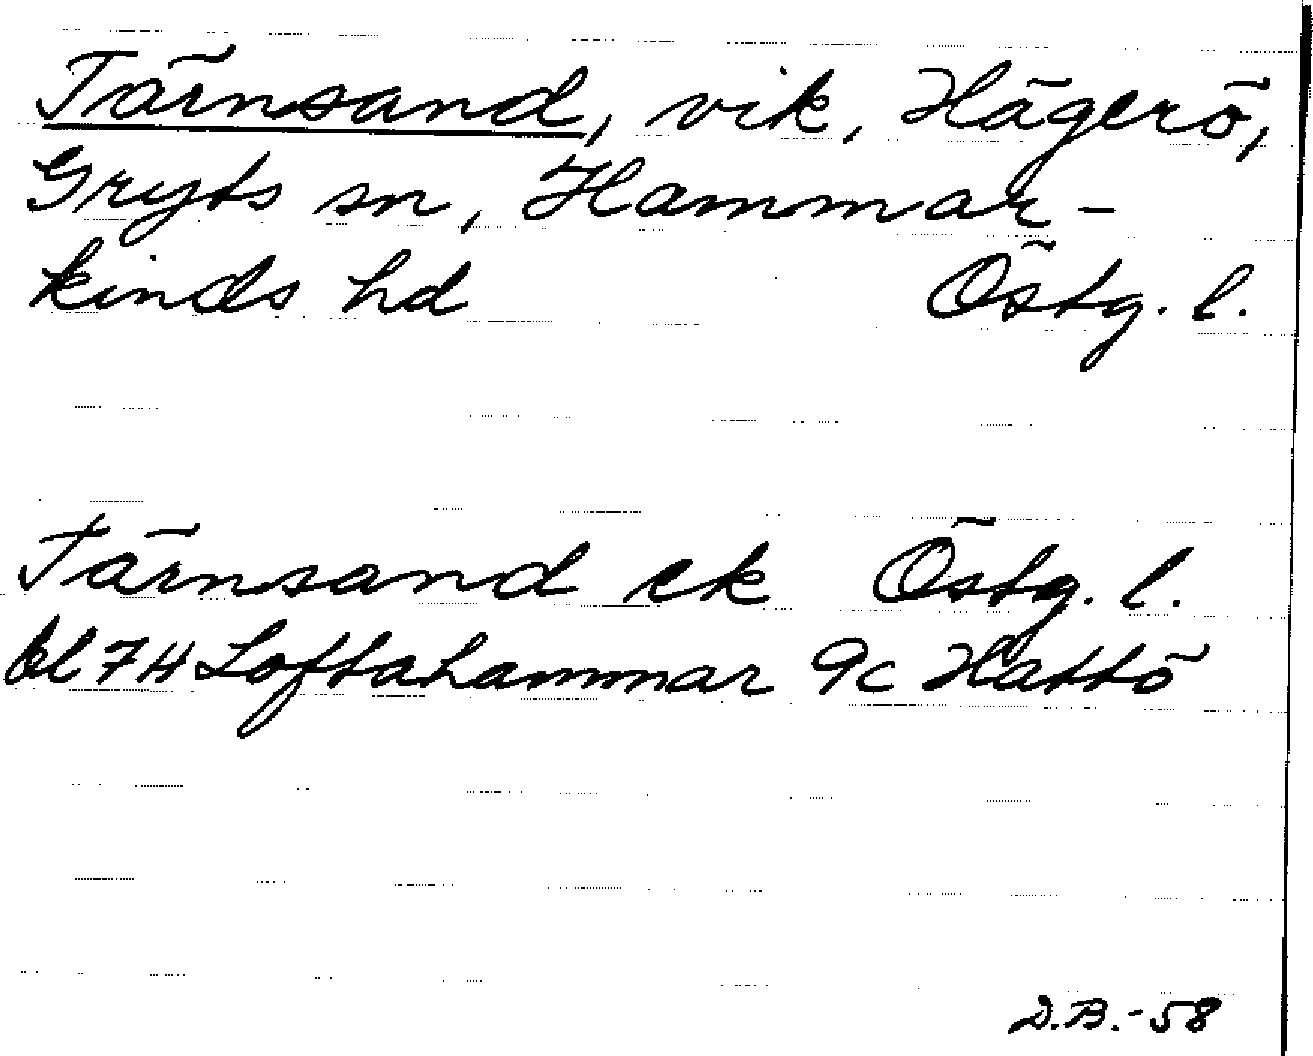 Tärnsand, vik, Hägerö,
Gryts sn, Hammar-
kinds hd Östg. l.
Tärnsand ek Östg. l.
bl 7H Loftahammar 9c Hattö
D.B.-58